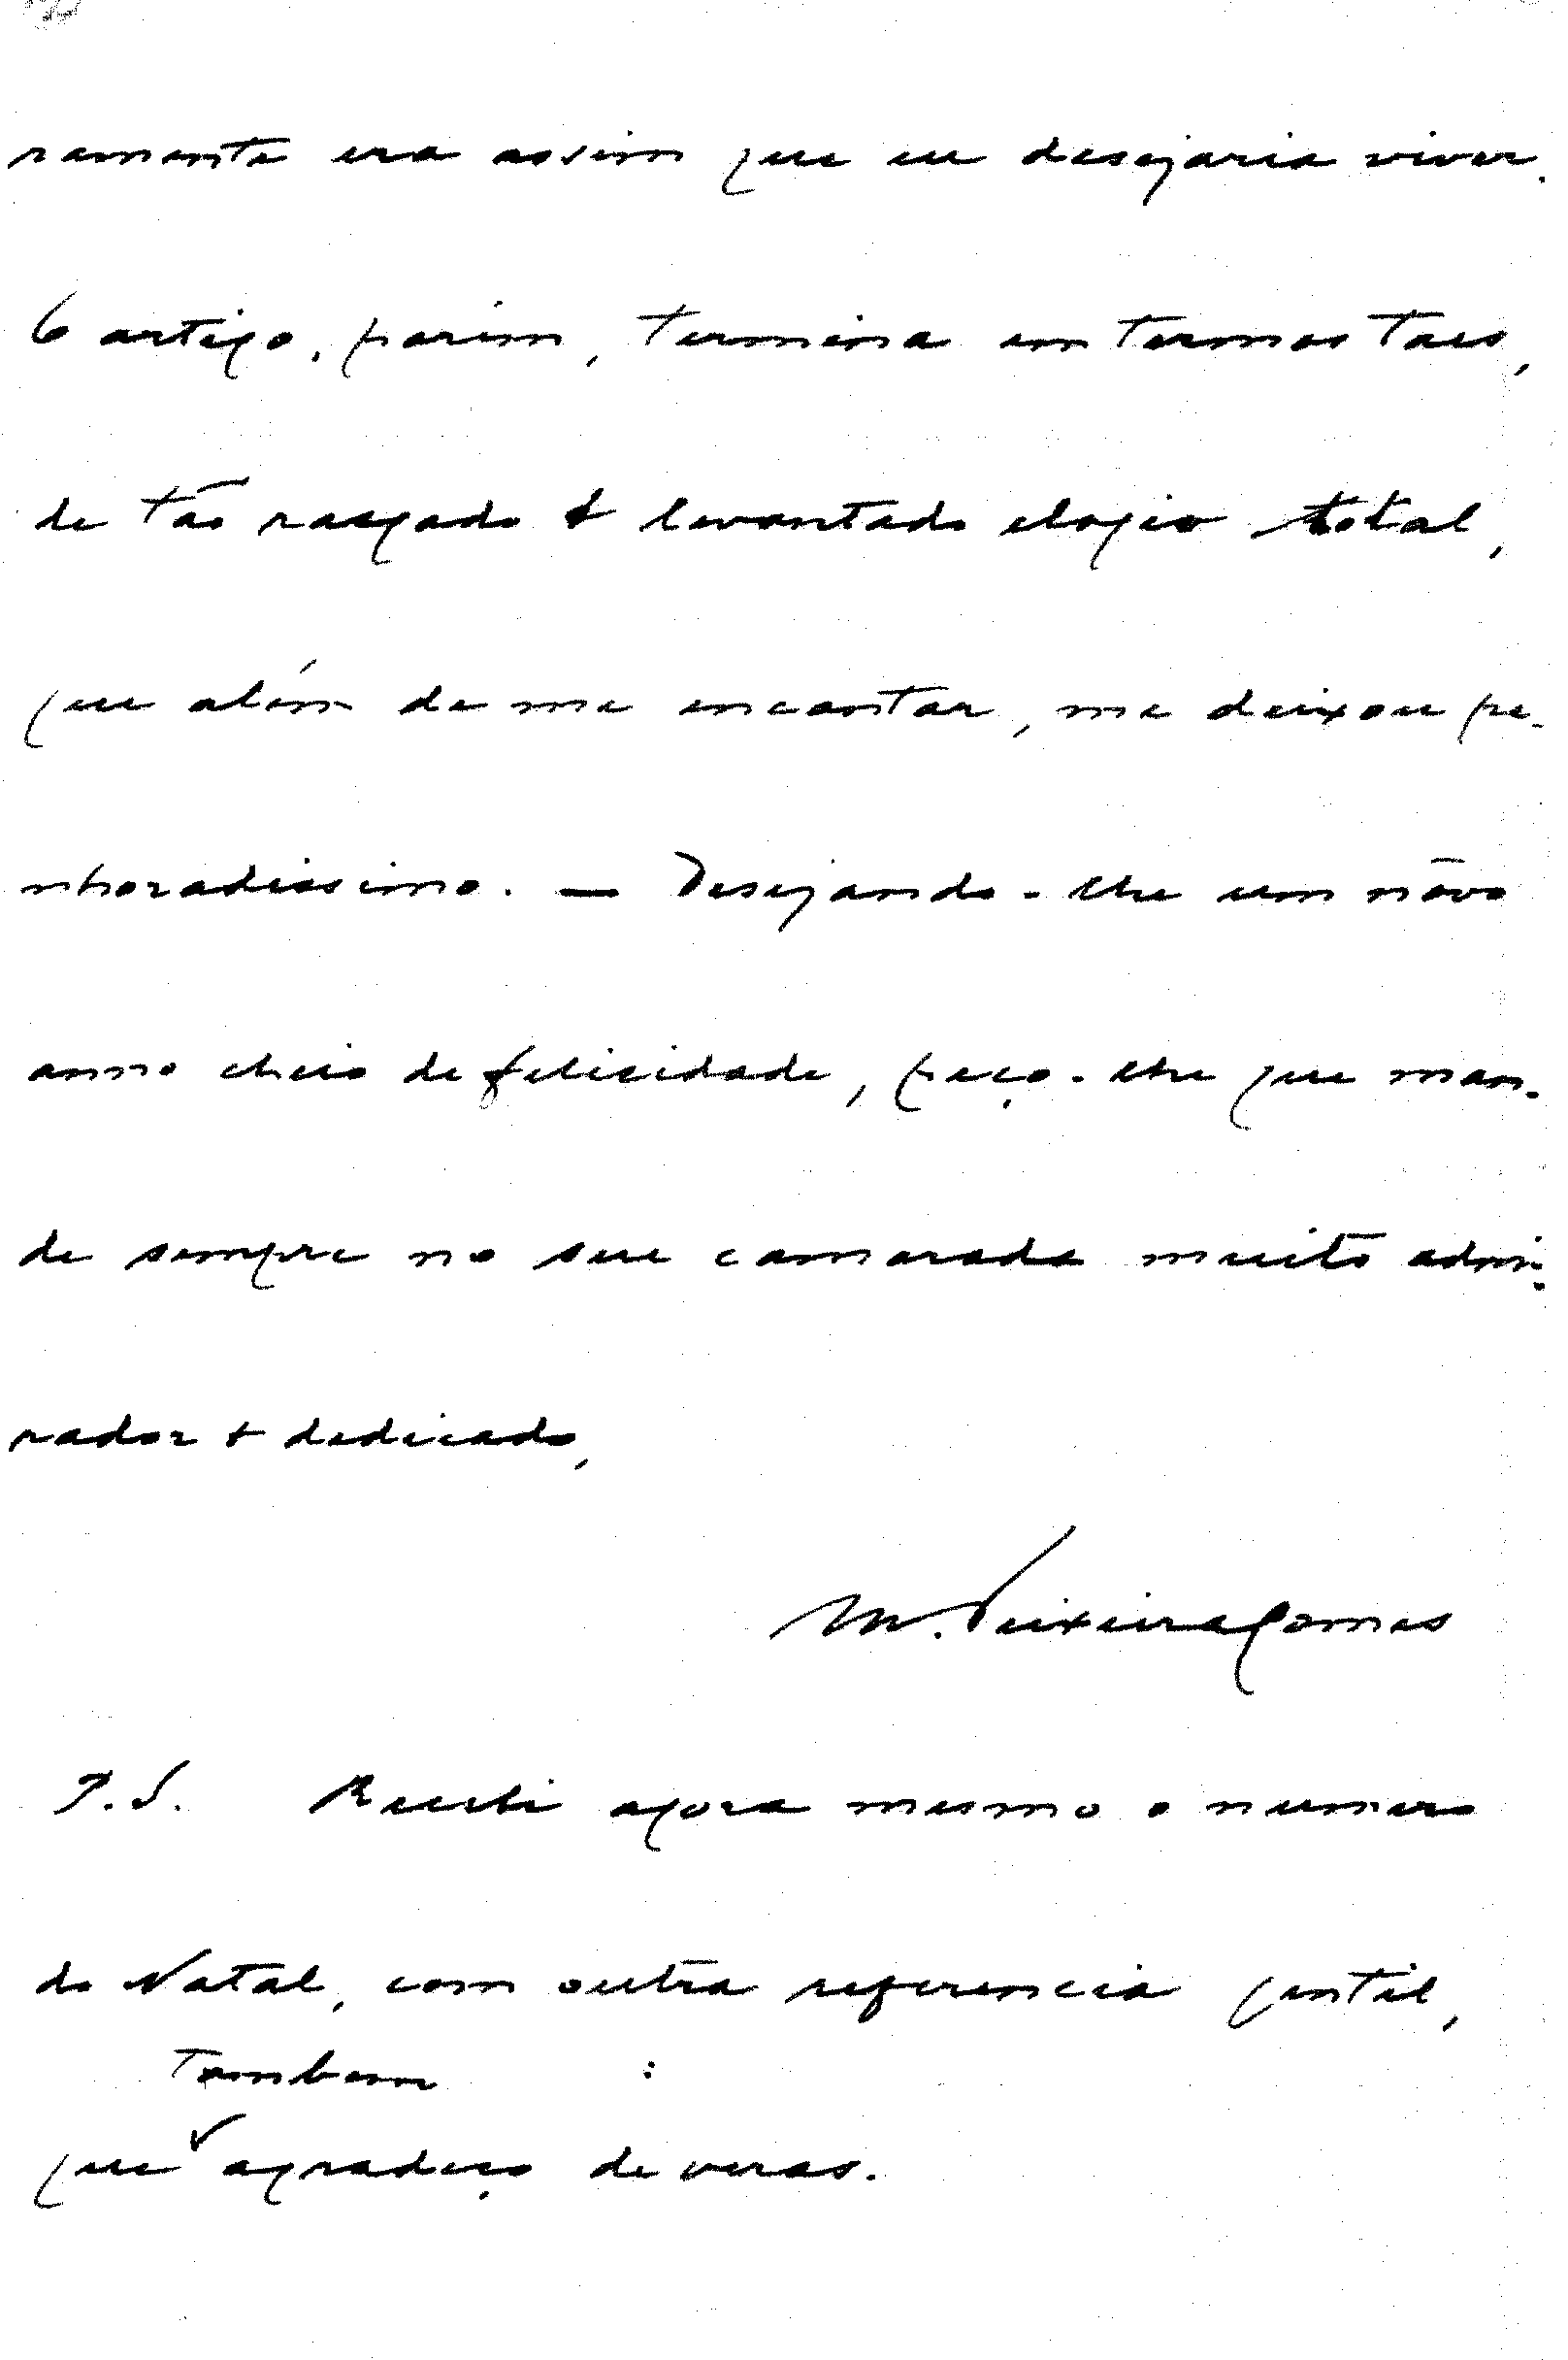 ramente era assim que eu desejaria viver.
O artigo, porém, termina em termos taes,
de tão rasgado & levantado elogio total,
que além de me encantar, me deixou pe-
nhoradissimo. — Desejando-lhe um nôvo
anno cheio de felicidade, peço-lhe que man-
de sempre no seu camarada muito admi-
rador & dedicado,
M. Teixeira Gomes
P.S. Recebi agora mesmo o numero
do Natal, com outra referencia gentil,
tambem :
que agradeço de veras.